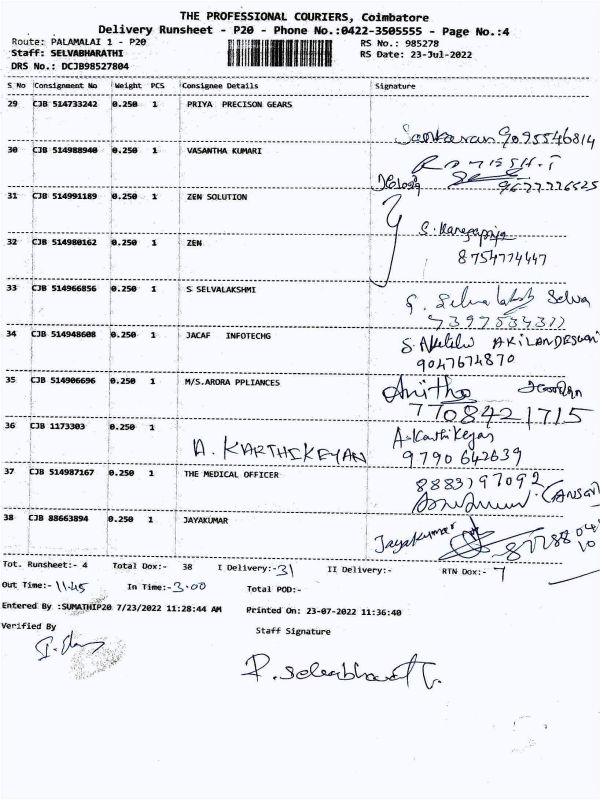 THE PROFESSIONAL COURIERS, Coimbatore
Delivery Runsheet - P20 - Phone No.:0422-3505555 - Page No.:4
Route: PALAMALAI 1 - P20 RS No.: 985278
Staff: SELVABHARATHI RS Date: 23-Jul-2022
DRS No.: DCJB98527804
S No Consignment No Weight PCS Consignee Details Signature
29 CJB 514733242 0.250 1 PRIYA PRECISON GEARS
Sankaran 9095546814
30 CJB 514988940 0.250 1 VASANTHA KUMARI
9677776525
31 CJB 514991189 0.250 1 ZEN SOLUTION
32 CJB 514980162 0.250 1 ZEN
8754774447
33 CJB 514966856 0.250 1 S SELVALAKSHMI
Selva
34 CJB 514948608 0.250 1 JACAF INFOTECHG
AKILANDESWARI
9047674870
35 CJB 514906696 0.250 1 M/S.ARORA PPLIANCES
Anitha
7708421715
36 CJB 1173303 0.250 1 A. KARTHIKEYAN
A. Karthikeyan
9790642639
37 CJB 514987167 0.250 1 THE MEDICAL OFFICER
8883797092
38 CJB 88663894 0.250 1 JAYAKUMAR
Jayakumar
Tot. Runsheet:- 4 Total Dox:- 38 I Delivery:- 31 II Delivery:- RTN Dox:- 7
Out Time:- 11.45 In Time:- 3.00 Total POD:-
Entered By :SUMATHIP20 7/23/2022 11:28:44 AM Printed On: 23-07-2022 11:36:40
Verified By Staff Signature
P. Selvabharathi